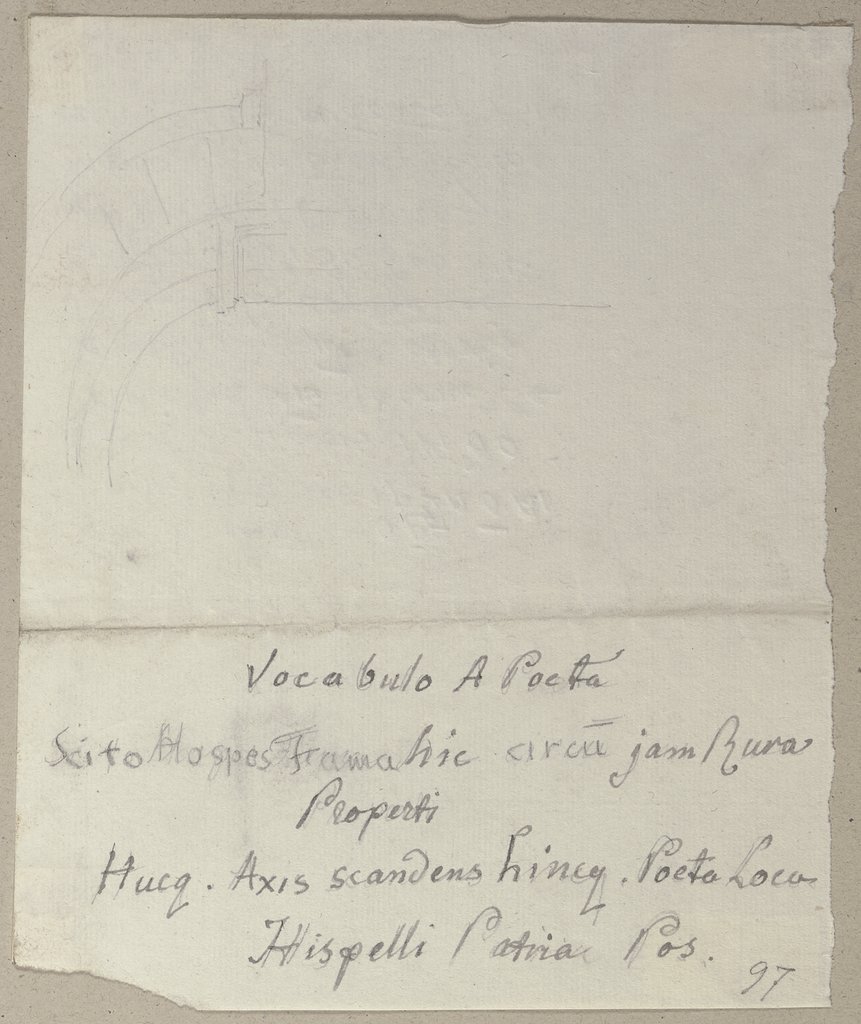 Vocabulo A Poeta
Scito Hospes Fama hic circū jam Rura
Properti
Hucq. Axis scandens hincq. Poeta Loca
Hispelli Patria Pos.
97